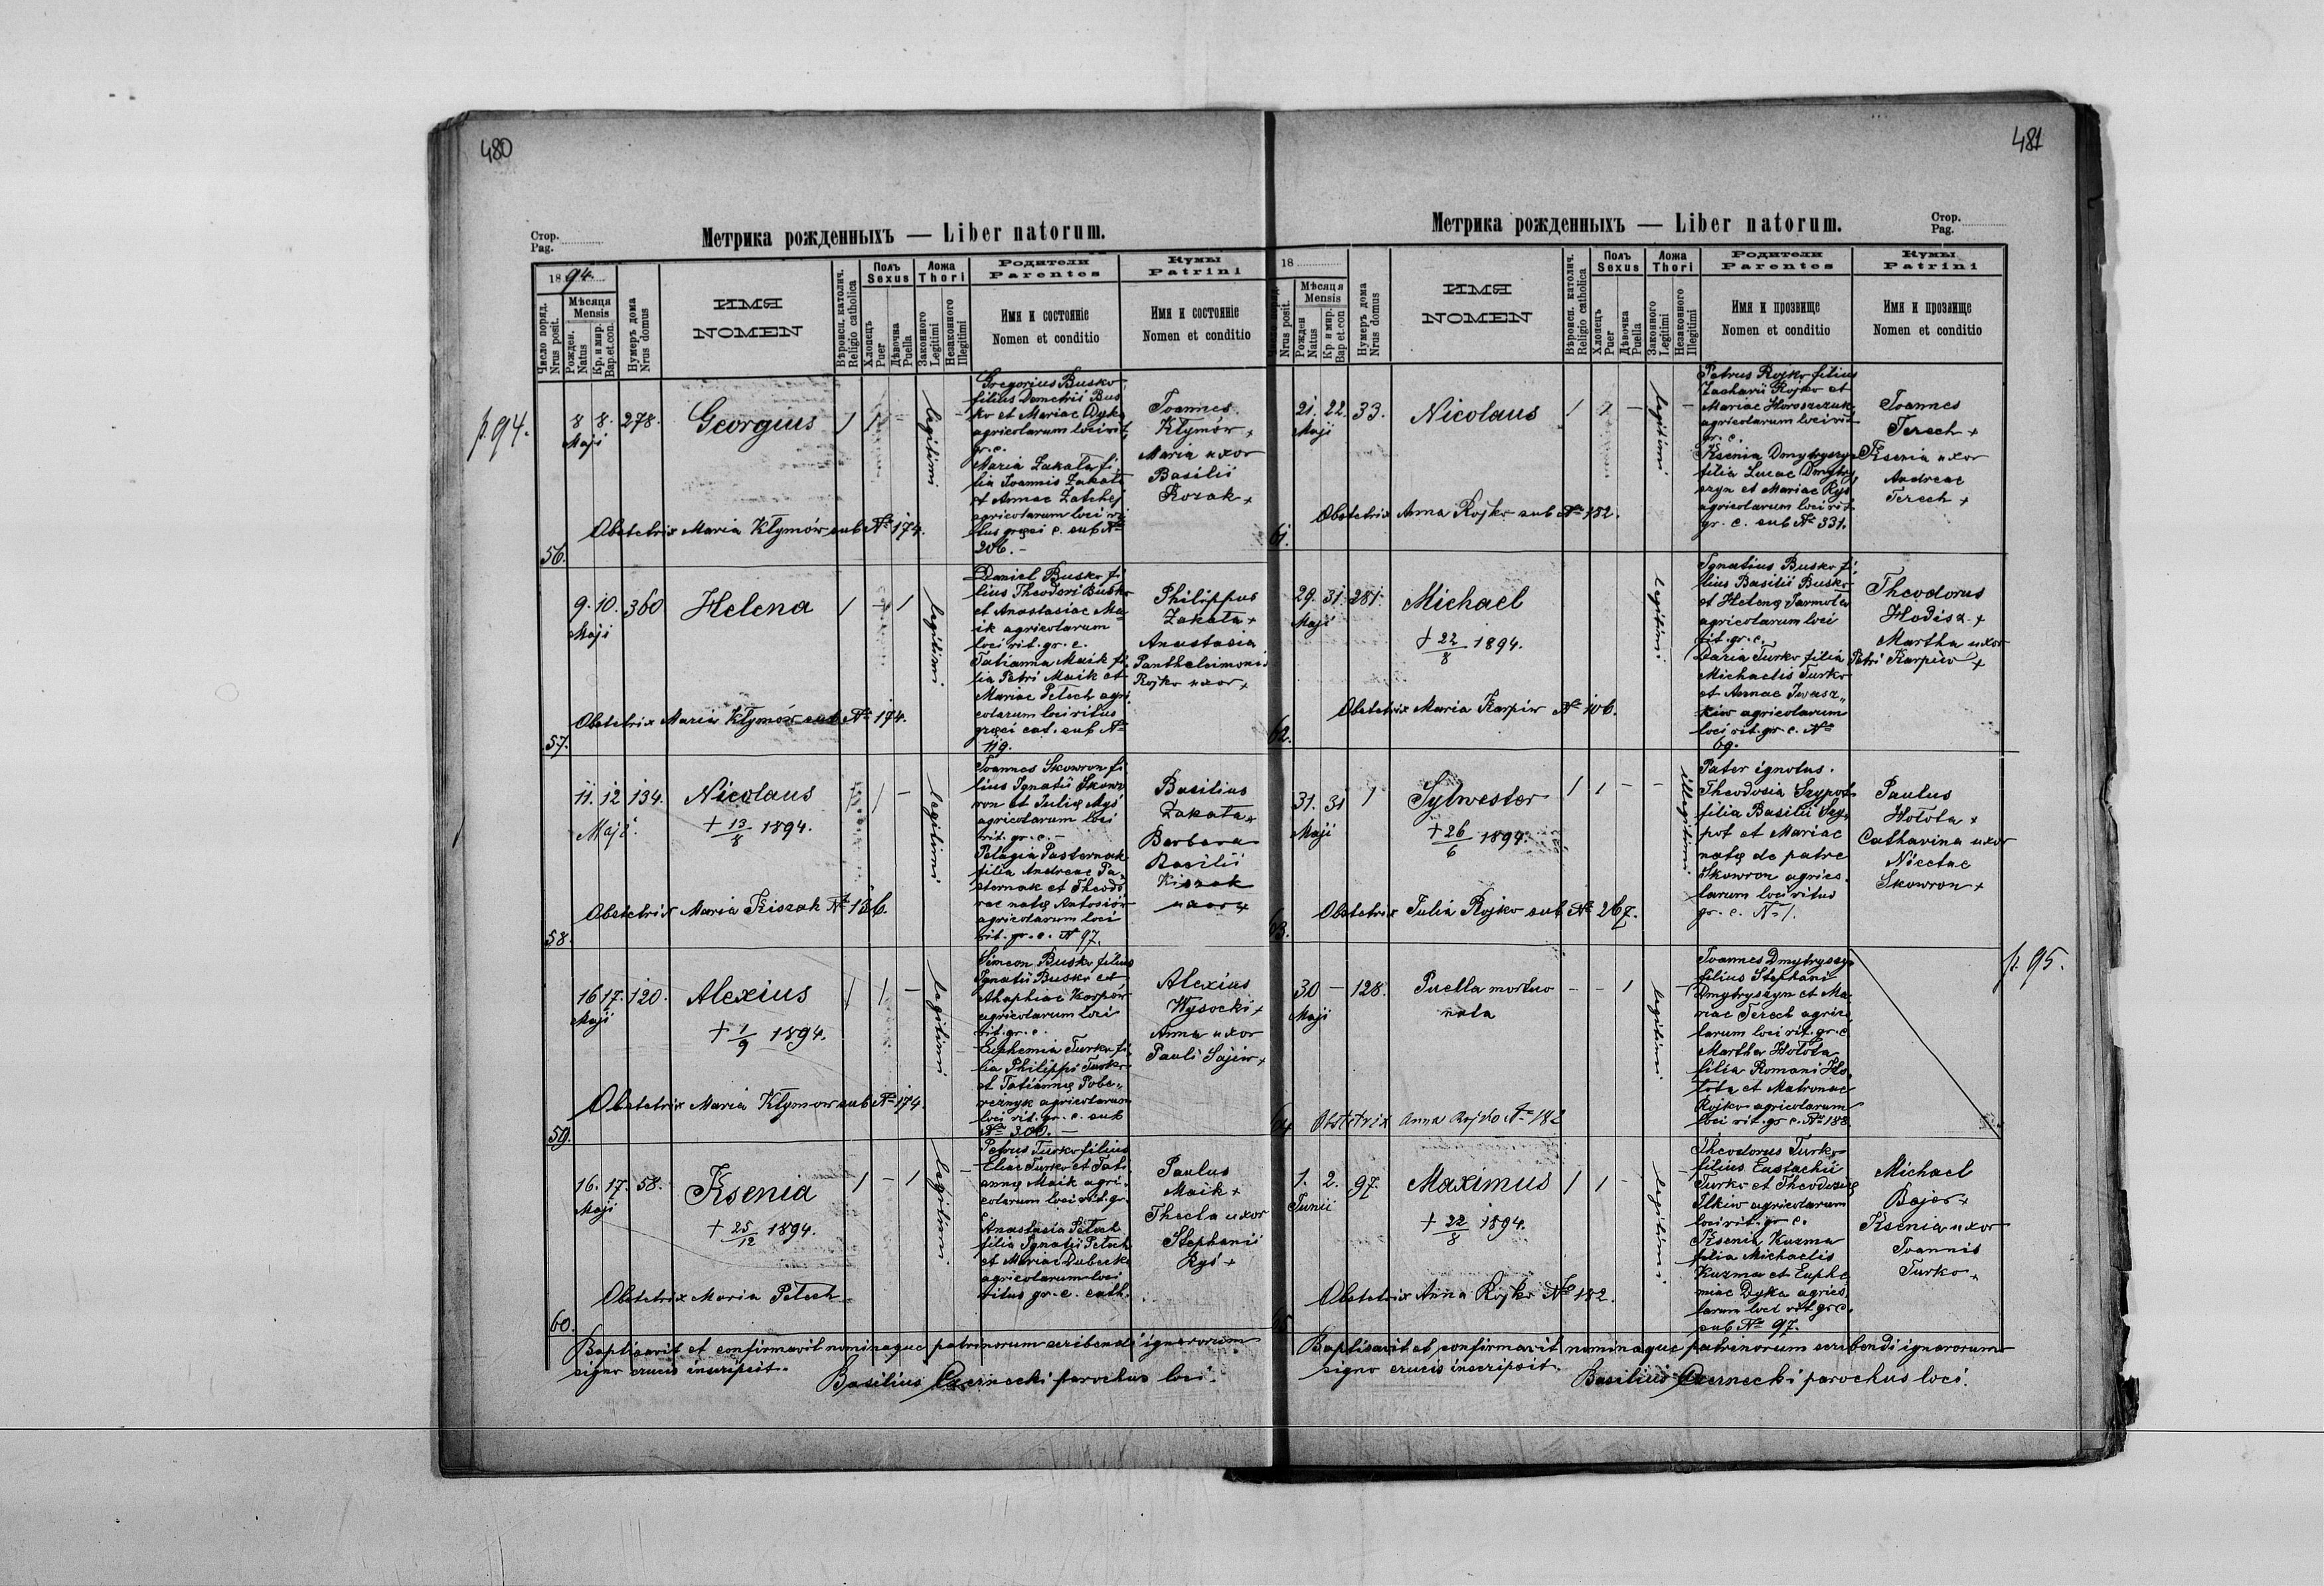 480
Стор.
Pag.
Метрика рожденныхъ — Liber natorum.
1894.
Число поряд.
Nrus posit.
Мѣсяця
Mensis
Рожден.
Natus
Кр. и мир.
Bap. et con.
Нумеръ дома
Nrus domus
ИМЯ
NOMEN
Вѣроисп. католич.
Religio catholica
Полъ
Sexus
Хлопецъ
Puer
Дѣвочка
Puella
Ложа
Thori
Законного
Legitimi
Незаконного
Illegitimi
Родители
Parentes
Имя и состоянiе
Nomen et conditio
Кумы
Patrini
Имя и состоянiе
Nomen et conditio
p. 94.
56.
8 8. 278. Georgius 1 1 -
Maji
legitimi
Gregorius Busko
filius Demetrii Bus
ko et Mariae Dyka
agricolarum loci rit.
gr. c.
Maria Zakała fi
lia Joannis Zakała
et Annae
agricolarum loci ri
tus graeci c. sub No
206. -
Joannes
Kłymów +
Maria uxor
Basilii
Kozak +
Obstetrix Maria Kłymów sub No 174.
57.
9. 10. 360 Helena 1 - 1
Maji
legitimi
Daniel Busko fi
lius Theodori Busko
et Anastasiae Ma
ik agricolarum
loci rit. gr. c.
Tatianna Maik fi
lia Petri Maik et
Mariae Petech agri
colarum loci ritus
graeci cat. sub No
119.
Philippus
Zakała +
Anastasia
Pantheleimonis
Rojko uxor +
Obstetrix Maria Kłymów sub No 174.
58.
11. 12 134. Nicolaus 1 1 -
Maji.
+ 13/8 1894.
legitimi
Joannes Skowron fi
lius Ignatii Skow
ron et Juliae Myś
agricolarum loci
rit. gr. c. -
Pelagia Pasternak
filia Andreae Pa
sternak et Theodo
rae natae Antosiów
agricolarum loci
rit. gr. c. N 97.
Basilius
Zakała +
Barbara
Basilii
Kiszak
uxor +
Obstetrix Maria Kiszak No 136.
59.
16 17. 120. Alexius 1 1 -
Maji
+ 1/9 1894.
legitimi
Simeon Busko filius
Ignatii Busko et
Ahaphiae Karpów
agricolarum loci
rit. gr. c.
Euphemia Turko fi
lia Philippi Turko
et Tatiannae Pobe„
reżnyk agricolarum
loci rit. gr. c. sub
No 300. -
Alexius
Wysocki +
Anna uxor
Pauli Sajiw +
Obstetrix Maria Kłymow sub No 174.
60.
16. 17. 58. Ksenia 1 - 1
Maji
+ 25/12 1894.
legitimi
Petrus Turko filius
Eliae Turko et Tati
annae Maik agri
colarum loci rit. gr.
Anastasia Petech
filia Ignatii Petech
et Mariae Dubecka
agricolarum loci
ritus gr. c. cath.
Paulus
Maik +
Thecla uxor
Stephanii
Ryś +
Obstetrix Maria Petech
Baptisavit et confirmavit nominaque patrinorum scribendi ignarorum
signo crucis inscripsit.
Basilius Czernecki parochus loci.
481
Метрика рожденныхъ — Liber natorum.
Стор.
Pag.
18
Nrus posit.
Мѣсяця
Mensis
Рожден
Natus
Кр и мир.
Bap et con
Нумеръ дома
Nrus domus
ИМЯ
NOMEN
Вѣроисп. католич.
Religio catholica
Полъ
Sexus
Хлопецъ
Puer
Дѣвочка
Puella
Ложа
Thori
Законного
Legitimi
Незаконного
Illegitimi
Родители
Parentes
Имя и прозвище
Nomen et conditio
Кумы
Patrini
Имя и прозвище
Nomen et conditio
61.
21. 22. 33. Nicolaus 1 1 -
Maji
legitimi
Petrus Rojko filius
Zacharii Rojko et
Mariae Horoszczuk
agricolarum loci rit
gr. c.
Ksenia Dmytryszyn
filia Lucae Dmytry
szyn et Mariae Ryś
agricolarum loci rit.
gr. c. sub No 331.
Joannes
Terech +
Ksenia uxor
Andreae
Terech +
Obstetrix Anna Rojko sub No 182.
62.
29. 31. 281. Michael
Maji
+ 22/8 1894.
legitimi
Ignatius Busko fi
lius Basilii Busko
et Helenae Jarmola
agricolarum loci
rit. gr. c.
Daria Turko filia
Michaelis Turko
et Annae Iwasz„
kiw agricolarum
loci rit. gr. c. No
69.
Theodorus
Hodisz +
Martha uxor
Petri Karpiw +
Obstetrix Maria Karpiw No 106.
63.
31. 31 1 Sylwester 1 1 -
Maji
+ 26/6 1894.
illegitimi
Pater ignotus.
Theodosia Szypot
filia Basilii Szy
pot et Mariae
natae de patre
Skowron agrico
larum loci ritus
gr. c. No 1.
Paulus
Hołota +
Catharina uxor
Nicetae
Skowron +
Obstetrix Julia Rojko sub No 267.
p. 95.
64
30 - 128. Puella mortuo - - 1
Maji
nata
legitimi
Joannes Dmytryszyn
filius Stephani
Dmytryszyn et Ma
riae Terech agrico
larum loci rit. gr. c
Martha Hołota
filia Romani Ho
łota et Matronae
Rojko agricolarum
loci rit. gr c. No 188
Obstetrix Anna Rojko No 182
65.
1. 2. 97. Maximus 1 1 -
Junii
+ 22/8 1894.
legitimi
Theodorus Turko
filius Eustachii
Turko et Theodosiae
Ilkiw agricolarum
loci rit. gr c.
Ksenia Kuzma
filia Michaelis
Kuzma et Euphe
miae Dyka agrico
larum loci rit. gr c.
sub No 97.
Michael
Bojer +
Ksenia uxor
Joannis
Turko +
Obstetrix Anna Rojko No 182.
Baptisavit et confirmavit nominaque patrinorum scribendi ignarorum
signo crucis inscripsit.
Basilius Czernecki parochus loci.